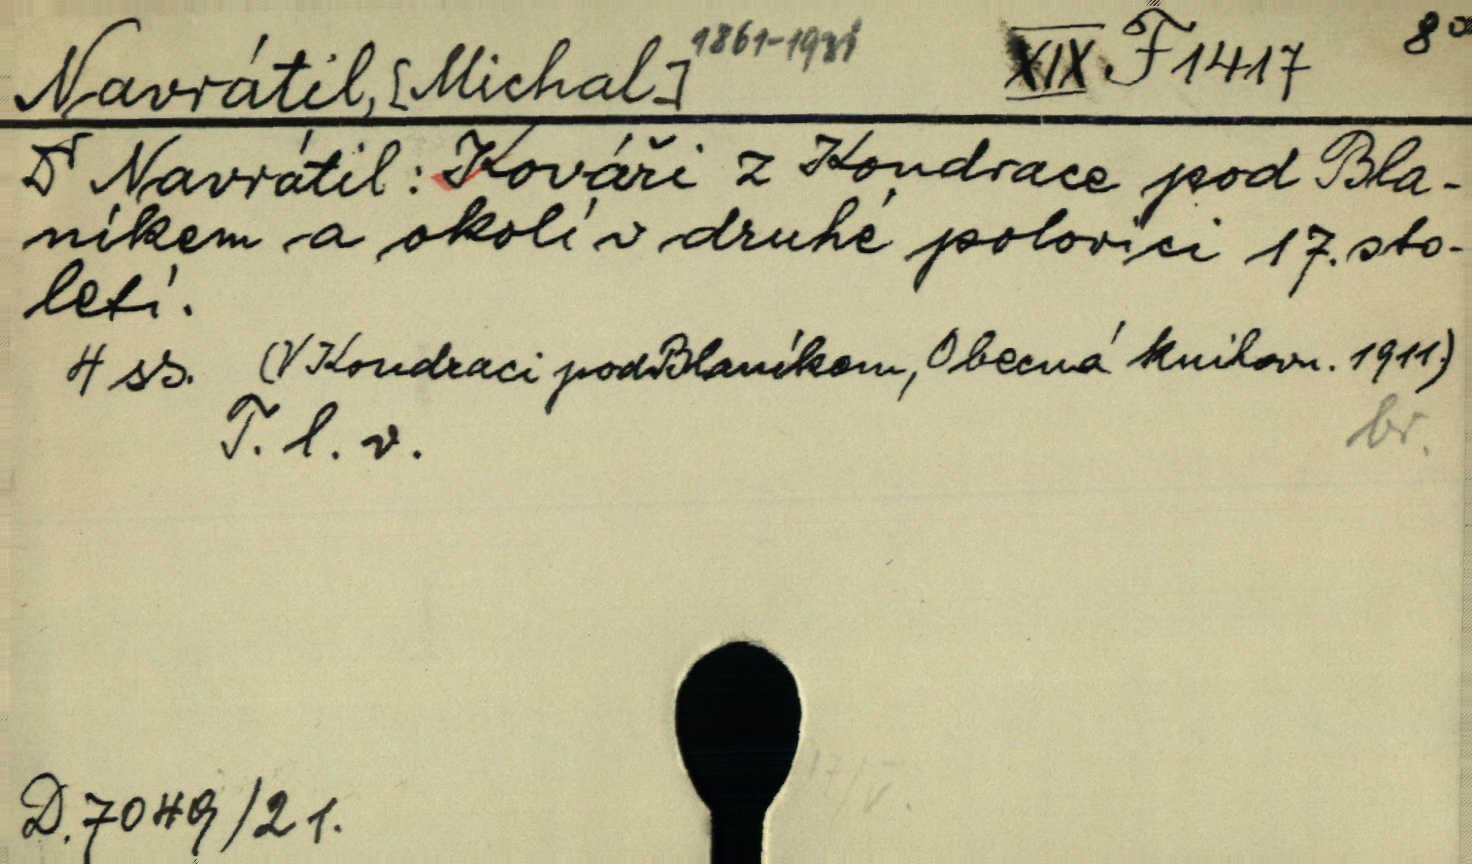 Navrátil, [Michal] XIX F 1417 8°
Dr Navrátil: Kováři z Kondrace pod Bla-
níkem a okolí v druhé polovici 17. sto-
letí.
4 ss. (V Kondraci pod Blaníkem, Obecná knihovn. 1911.)
T. l. v. br.
D. 7049/21.